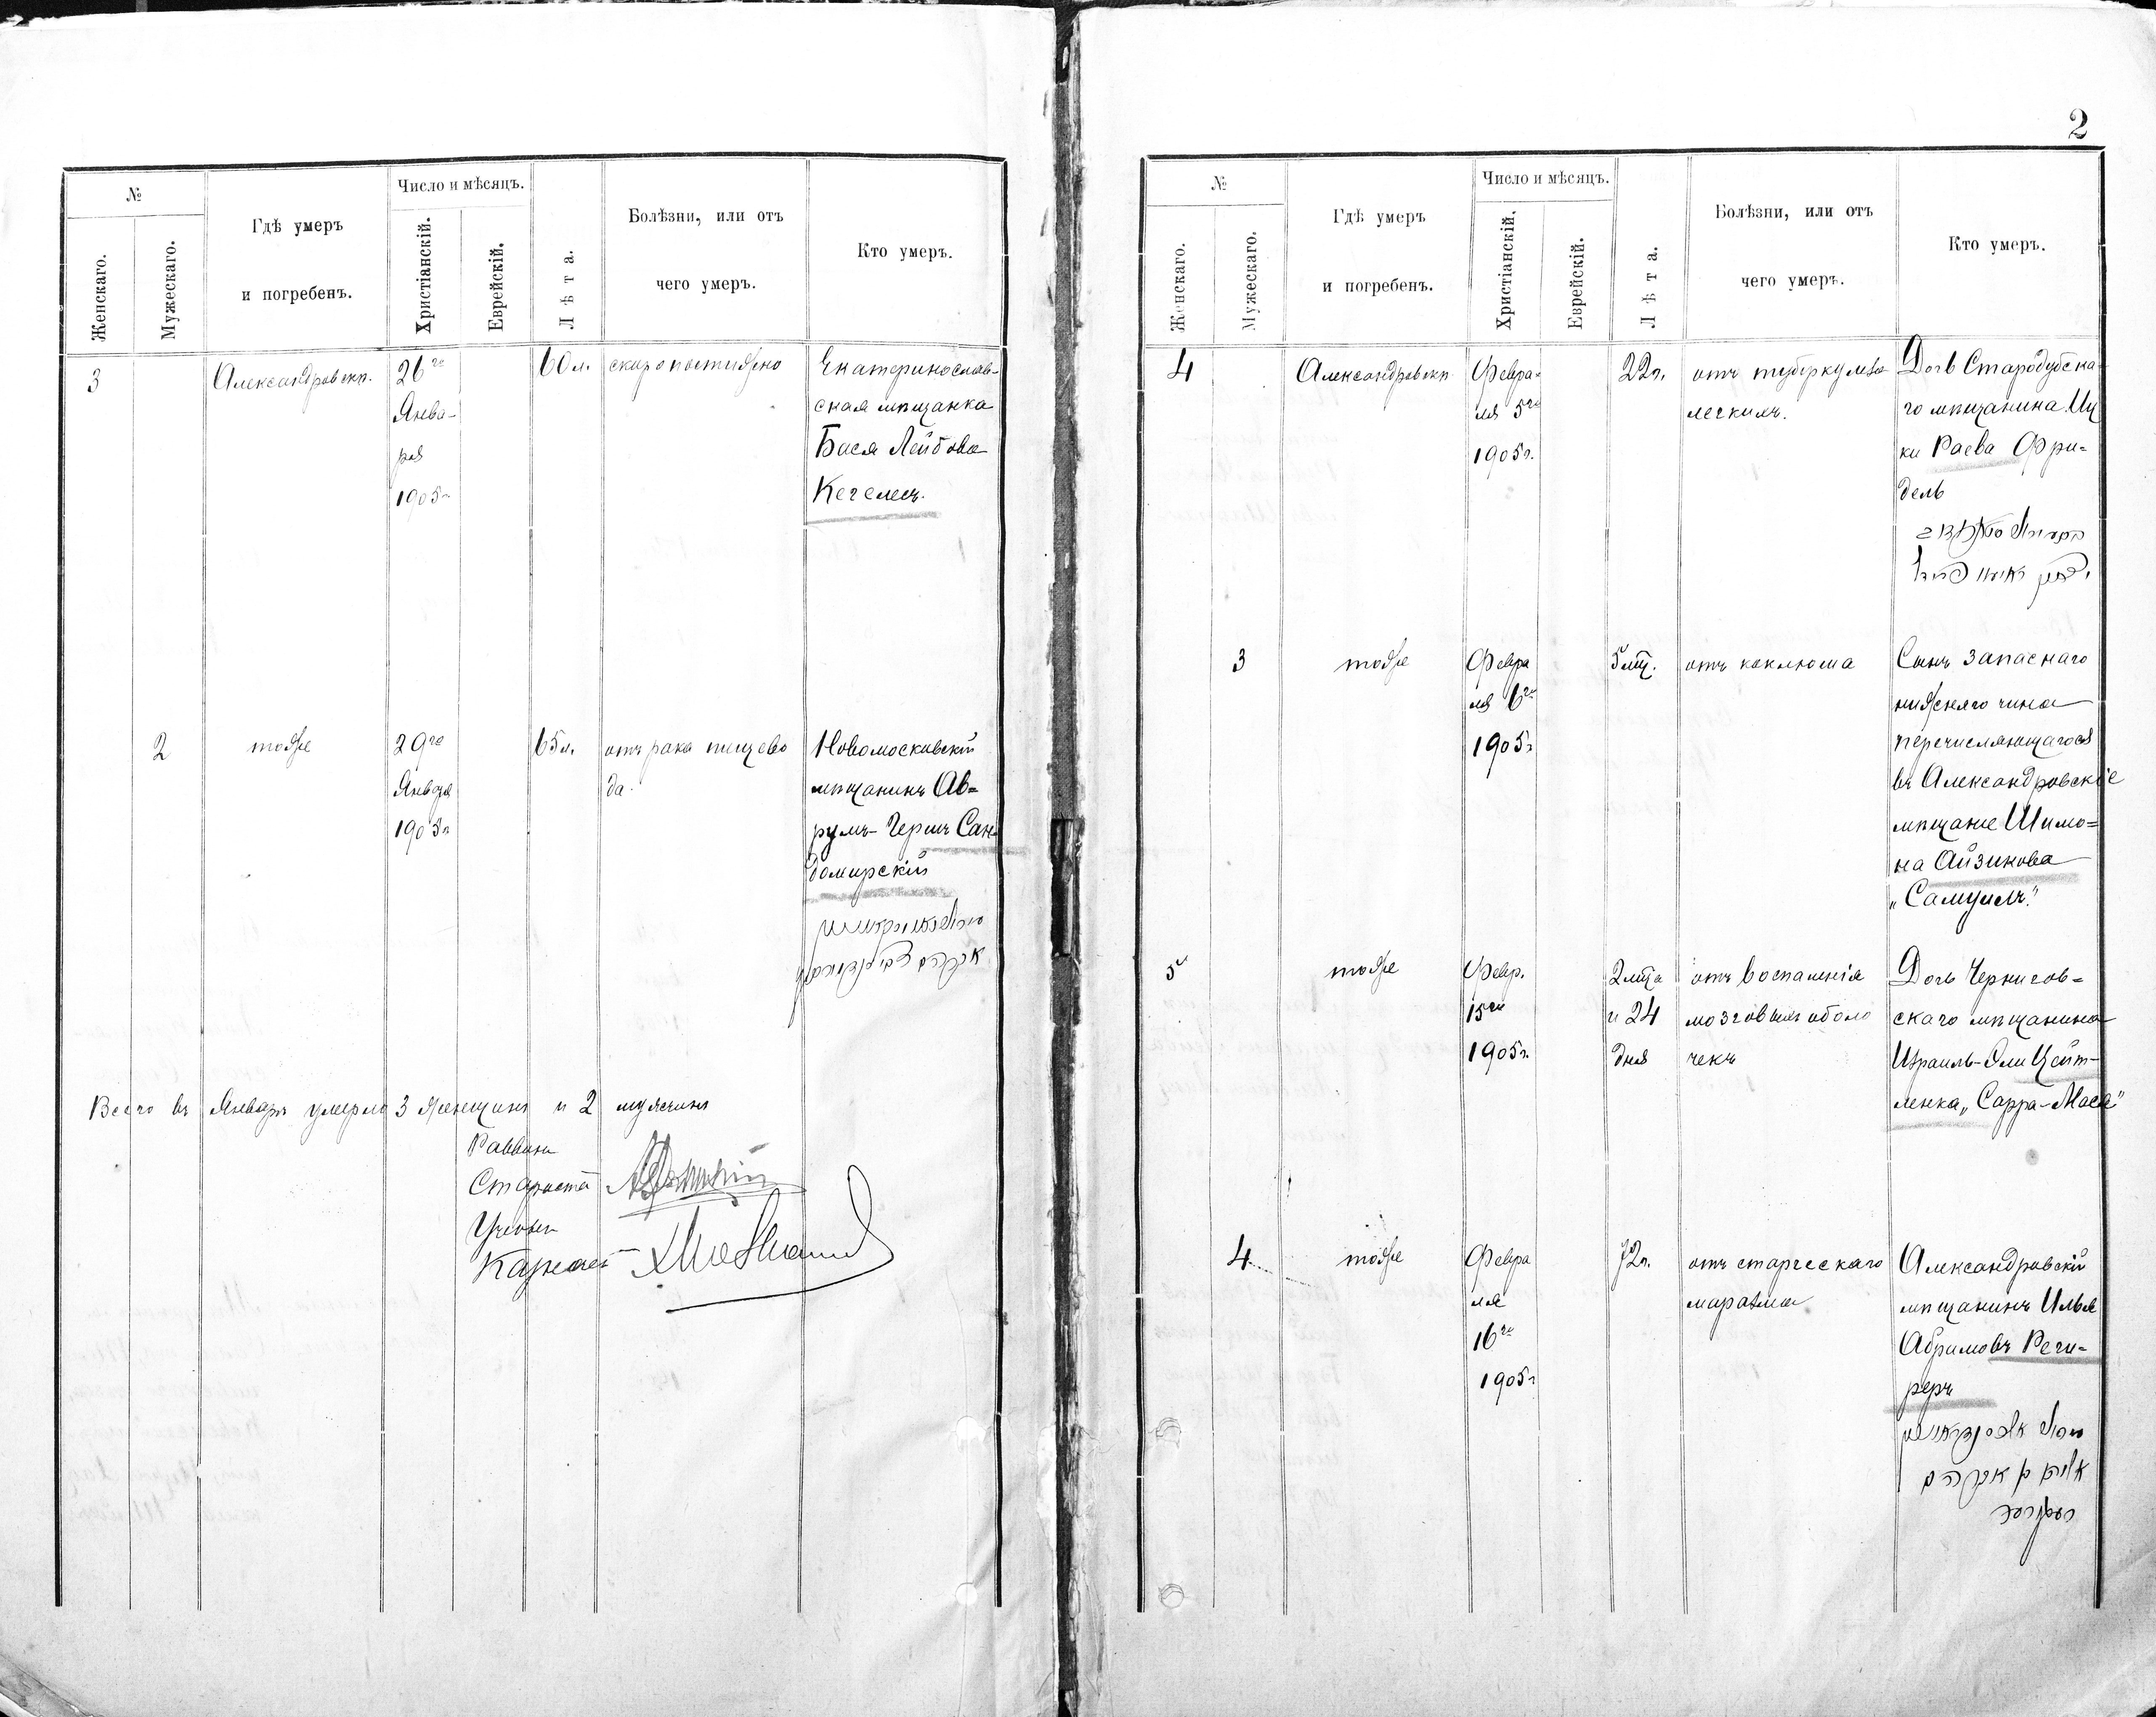 2
№
Женскаго.
Мужескаго.
Гдѣ умеръ
и погребенъ.
Число и мѣсяцъ.
Христіанскій.
Еврейскій.
Лѣта.
Болѣзни, или отъ
чего умеръ.
Кто умеръ.
3
Александровск.
26го
Янва-
ря
1905г
60 л.
скоропостижно
Екатеринослав-
ская мѣщанка
Бася Лейбова
Кегелесъ.
2
тоже
29го
Января
1905г
65 л.
отъ рака пищево
да.
Новомосковскій
мѣщанинъ Ав=
румъ-Гершъ Сан-
домирскій
Всего въ Январѣ умерло 3 женщины и 2 мужчины
Раввинъ
Староста
Ученый
Казначей
№
Женскаго.
Мужескаго.
Гдѣ умеръ
и погребенъ.
Число и мѣсяцъ.
Христіанскій.
Еврейскій.
Лѣта.
Болѣзни, или отъ
чего умеръ.
Кто умеръ.
4
Александровск
Февра=
ля 5го
1905г.
22 г.
отъ туберкулеза
легкихъ.
Дочь Стародубска-
го мѣщанина Иц
ки Раева Фри=
дель
3
тоже
Февра
ля 6го
1905г
5 мѣ.
отъ коклюша
Сынъ запаснаго
нижсняго чина
перечисляющагося
въ Александровскіе
мѣщане Шимо=
на Айзикова
„Самуилъ."
5
тоже
Февр.
15го
1905г.
2 мѣца
и 24
дня
отъ воспаленія
мозговыхъ оболо
чекъ
Дочь Чернигов=
скаго мѣщанина
Израиль-Эли Цейт-
ленка „Сарра-Мася"
4
тоже
Февра
ля
16го
1905г
72 г.
отъ старческаго
маразма
Александровскій
мѣщанинъ Илья
Абрамовъ Реги=
реръ